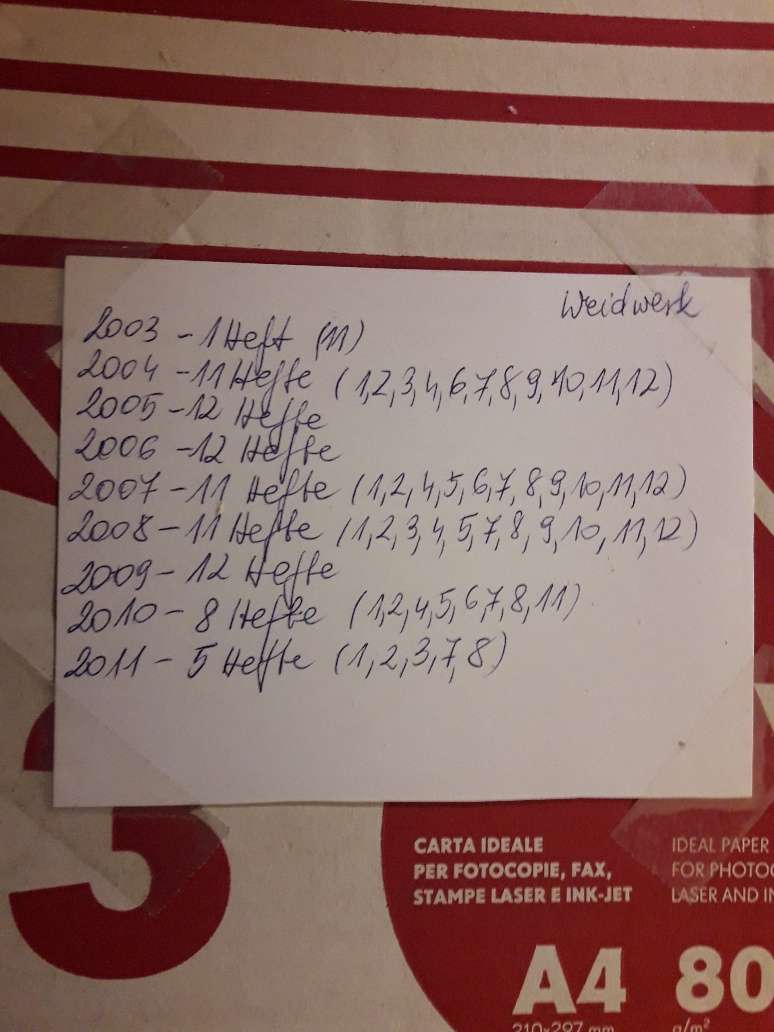 Weidwerk
2003 - 1 Heft (11)
2004 - 11 Hefte (1,2,3,4,6,7,8,9,10,11,12)
2005 - 12 Hefte
2006 - 12 Hefte
2007 - 11 Hefte (1,2,4,5,6,7,8,9,10,11,12)
2008 - 11 Hefte (1,2,3,4,5,7,8,9,10,11,12)
2009 - 12 Hefte
2010 - 8 Hefte (1,2,4,5,6,7,8,11)
2011 - 5 Hefte (1,2,3,7,8)
3
CARTA IDEALE
PER FOTOCOPIE, FAX,
STAMPE LASER E INK-JET
IDEAL PAPER
FOR PHOTOC
LASER AND IN
A4 80
210x297 mm g/m²